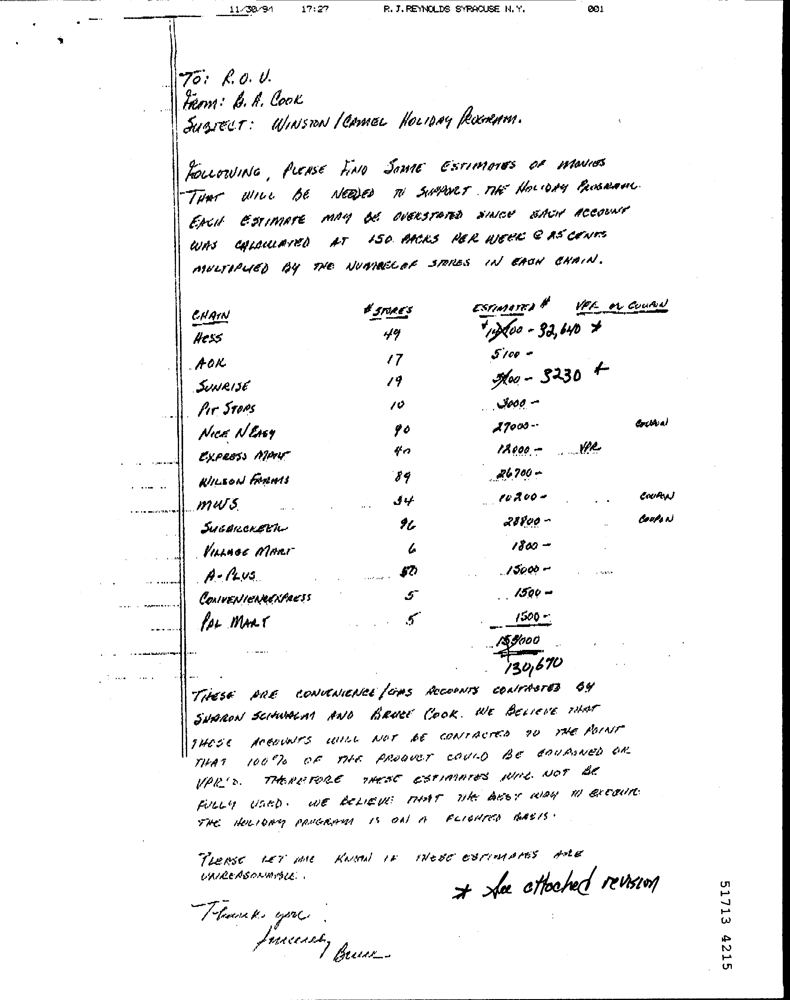 11/30/94 17:27 R.J.REYNOLDS SYRACUSE N.Y. 001
TO: R.O.V.
FROM: B.A. COOK
SUBJECT: WINSTON / CAMEL HOLIDAY PROGRAM.
FOLLOWING, PLEASE FIND SOME ESTIMATES OF MONIES
THAT WILL BE NEEDED TO SUPPORT THE HOLIDAY PROGRAM.
EACH ESTIMATE MAY BE OVERSTATED SINCE EACH ACCOUNT
WAS CALCULATED AT 150 PACKS PER WEEK @ 25 CENTS
MULTIPLIED BY THE NUMBER OF STORES IN EACH CHAIN.
CHAIN # STORES ESTIMATED # VPR OR COUPON
HESS 49 - 32,640 *
AOK 17 5100 -
SUNRISE 19 - 3230 *
PIT STOPS 10 3000 -
NICE N EASY 90 27000 - COUPON
EXPRESS MART 40 12000 - VPR
WILSON FARMS 89 26700 -
MWS 34 10200 - COUPON
SUGARCREEK 96 28800 - COUPON
VILLAGE MART 6 1800 -
A-PLUS 50 15000 -
CONVENIENEXPRESS 5 1500 -
PAL MART 5 1500 -
130,670
THESE ARE CONVENIENCE / GAS ACCOUNTS CONTACTED BY
SHARON SCHWALM AND BRUCE COOK. WE BELIEVE THAT
THESE ACCOUNTS WILL NOT BE CONTACTED TO THE POINT
THAT 100% OF THE PRODUCT COULD BE COUPONED OR
VPR'D. THEREFORE THESE ESTIMATES WILL NOT BE
FULLY USED. WE BELIEVE THAT THE BEST WAY TO EXECUTE
THE HOLIDAY PROGRAM IS ON A FLIGHTED BASIS.
PLEASE LET ME KNOW IF THESE ESTIMATES ARE
UNREASONABLE.
* See attached revision
Thank you
Sincerely
Bruce
51713 4215